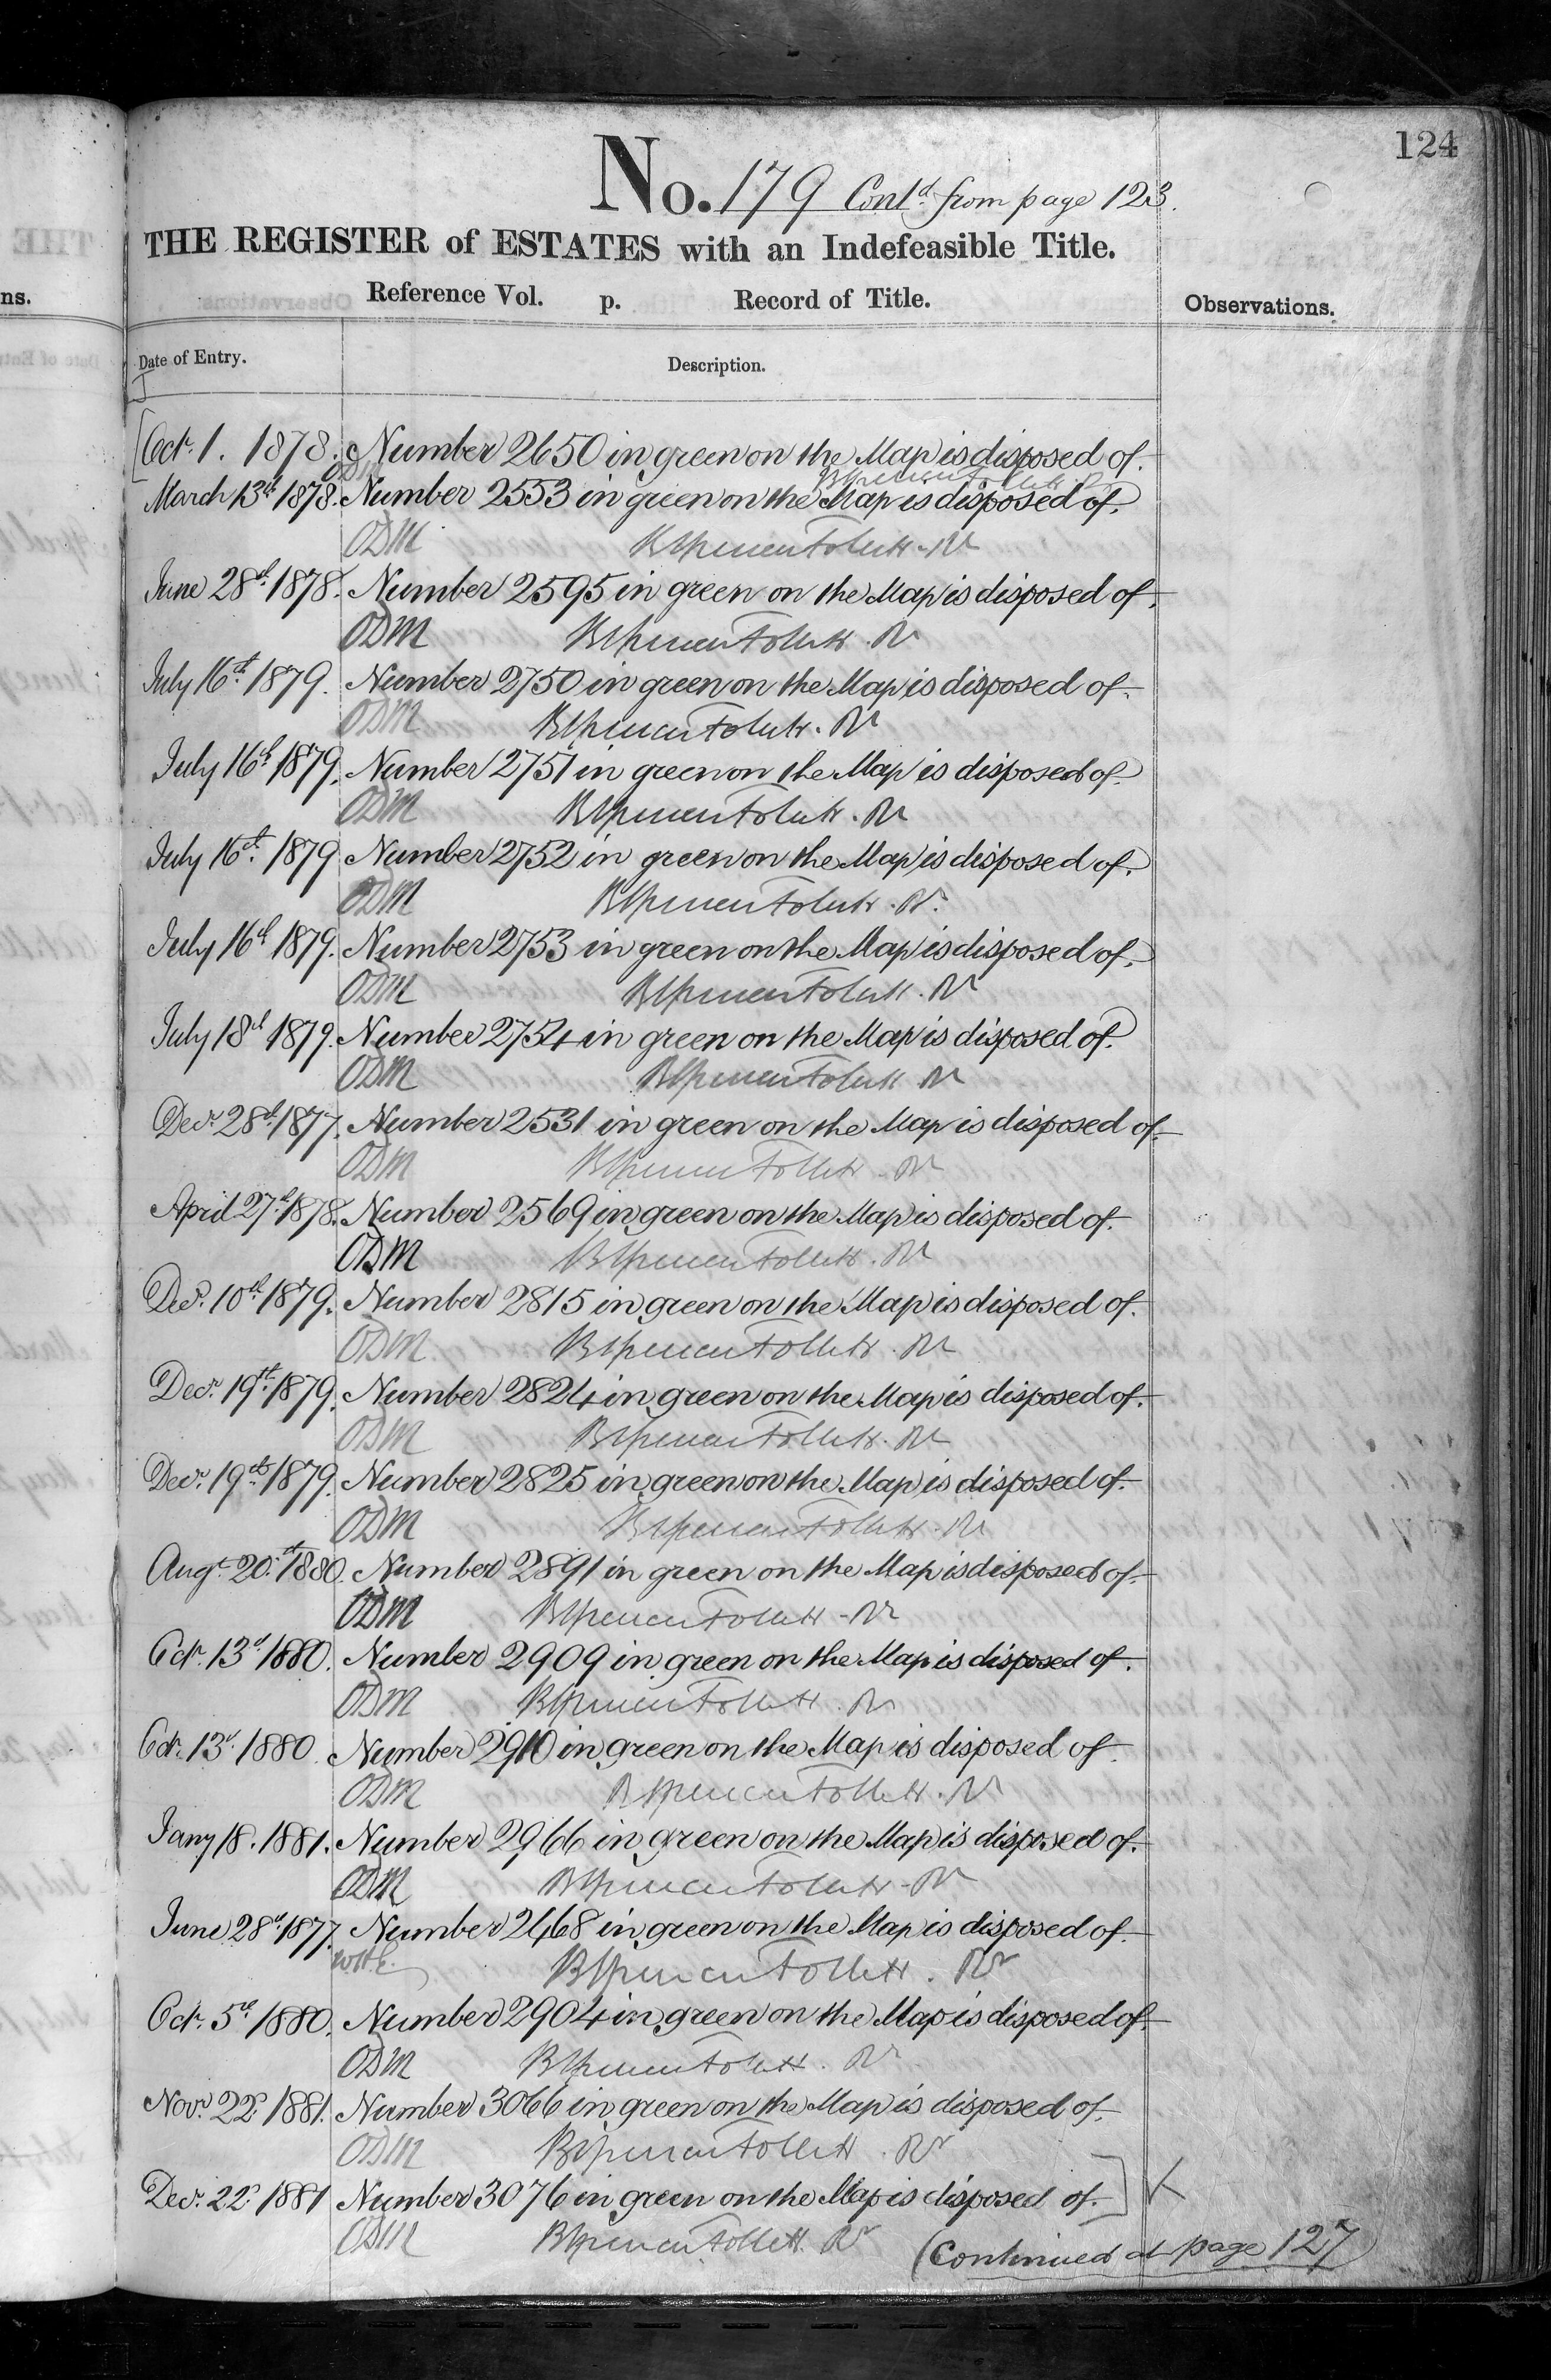 124
No. 179 Contd. from page 123.
THE REGISTER of ESTATES with an Indefeasible Title.
ns.
Reference Vol. p. Record of Title.
Observations.
Date of Entry. Description.
[Octr. 1. 1878. Number 2650 in green on the Map is disposed of.
ODM
March 13th 1878. Number 2553 in green on the Map is disposed of.
ODM
June 28th 1878. Number 2595 in green on the Map is disposed of.
ODM
July 16th 1879. Number 2750 in green on the Map is disposed of.
ODM
July 16th 1879. Number 2751 in green on the Map is disposed of.
ODM
July 16th 1879. Number 2752 in green on the Map is disposed of.
ODM
July 16th 1879. Number 2753 in green on the Map is disposed of.
ODM
July 18th 1879. Number 2754 in green on the Map is disposed of.
ODM
Decr. 28th 1877. Number 2531 in green on the Map is disposed of.
ODM
April 27th 1878. Number 2569 in green on the Map is disposed of.
ODM
Decr. 10th 1879. Number 2815 in green on the Map is disposed of.
ODM
Decr. 19th 1879. Number 2824 in green on the Map is disposed of.
ODM
Decr. 19th 1879. Number 2825 in green on the Map is disposed of.
ODM
Augt. 20th 1880. Number 2891 in green on the Map is disposed of.
ODM
Octr. 13th 1880. Number 2909 in green on the Map is disposed of.
ODM
Octr. 13th 1880. Number 2910 in green on the Map is disposed of.
ODM
Jany 18. 1881. Number 2966 in green on the Map is disposed of.
ODM
June 28th 1877. Number 2468 in green on the Map is disposed of.
Octr. 5th 1880. Number 2904 in green on the Map is disposed of.
ODM
Novr. 22d 1881. Number 3066 in green on the Map is disposed of.
ODM
Decr. 22d 1881 Number 3076 in green on the Map is disposed of.]
ODM
(Continued at page 127)